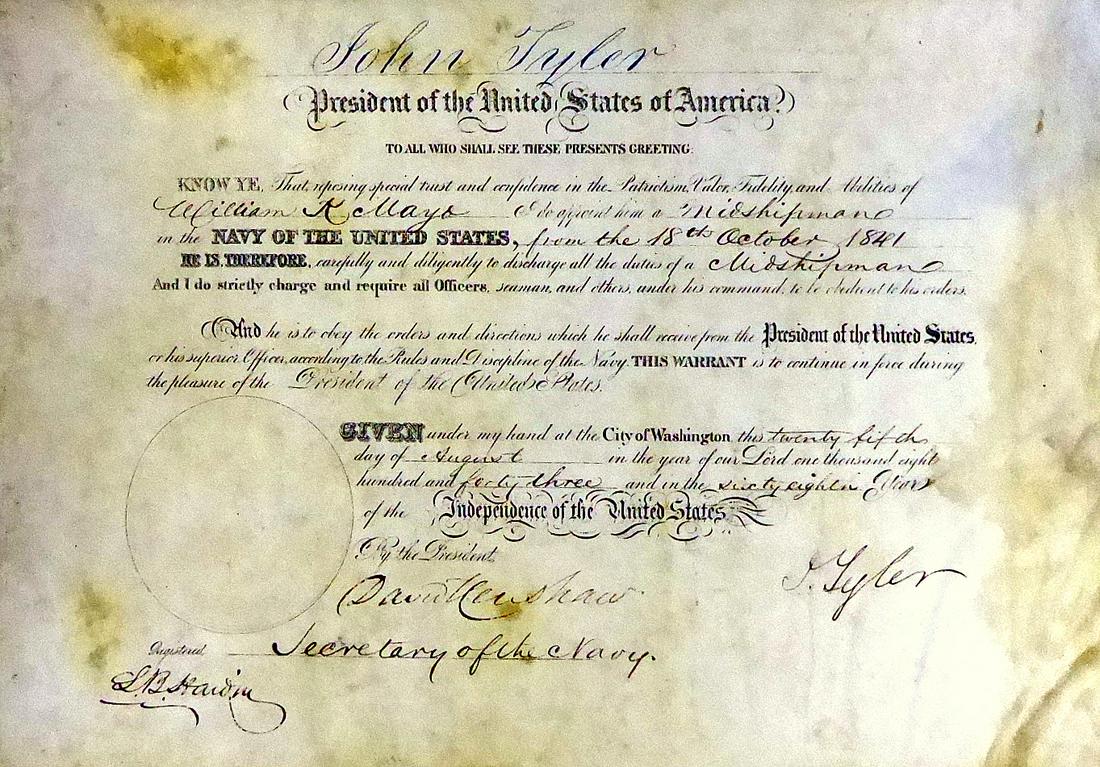 John Tyler
President of the United States of America.
TO ALL WHO SHALL SEE THESE PRESENTS GREETING:
KNOW YE, That, reposing special trust and confidence in the Patriotism, Valor, Fidelity, and Abilities of
William K Mayo I do appoint him a Midshipman
in the NAVY OF THE UNITED STATES, from the 18th October 1841
HE IS, THEREFORE, carefully and diligently to discharge all the duties of a Midshipman
And I do strictly charge and require all Officers, seaman, and others, under his command, to be obedient to his orders.
And he is to obey the orders and directions which he shall receive from the President of the United States,
or his superior Officer, according to the Rules and Discipline of the Navy. THIS WARRANT is to continue in force during
the pleasure of the President of the United States.
GIVEN under my hand at the City of Washington this twenty fifth
day of August in the year of our Lord one thousand eight
hundred and forty three and in the sixty eighth Year
of the Independence of the United States.
By the President,
J. Tyler
David Henshaw
Registered Secretary of the Navy.
L.B. Hardin